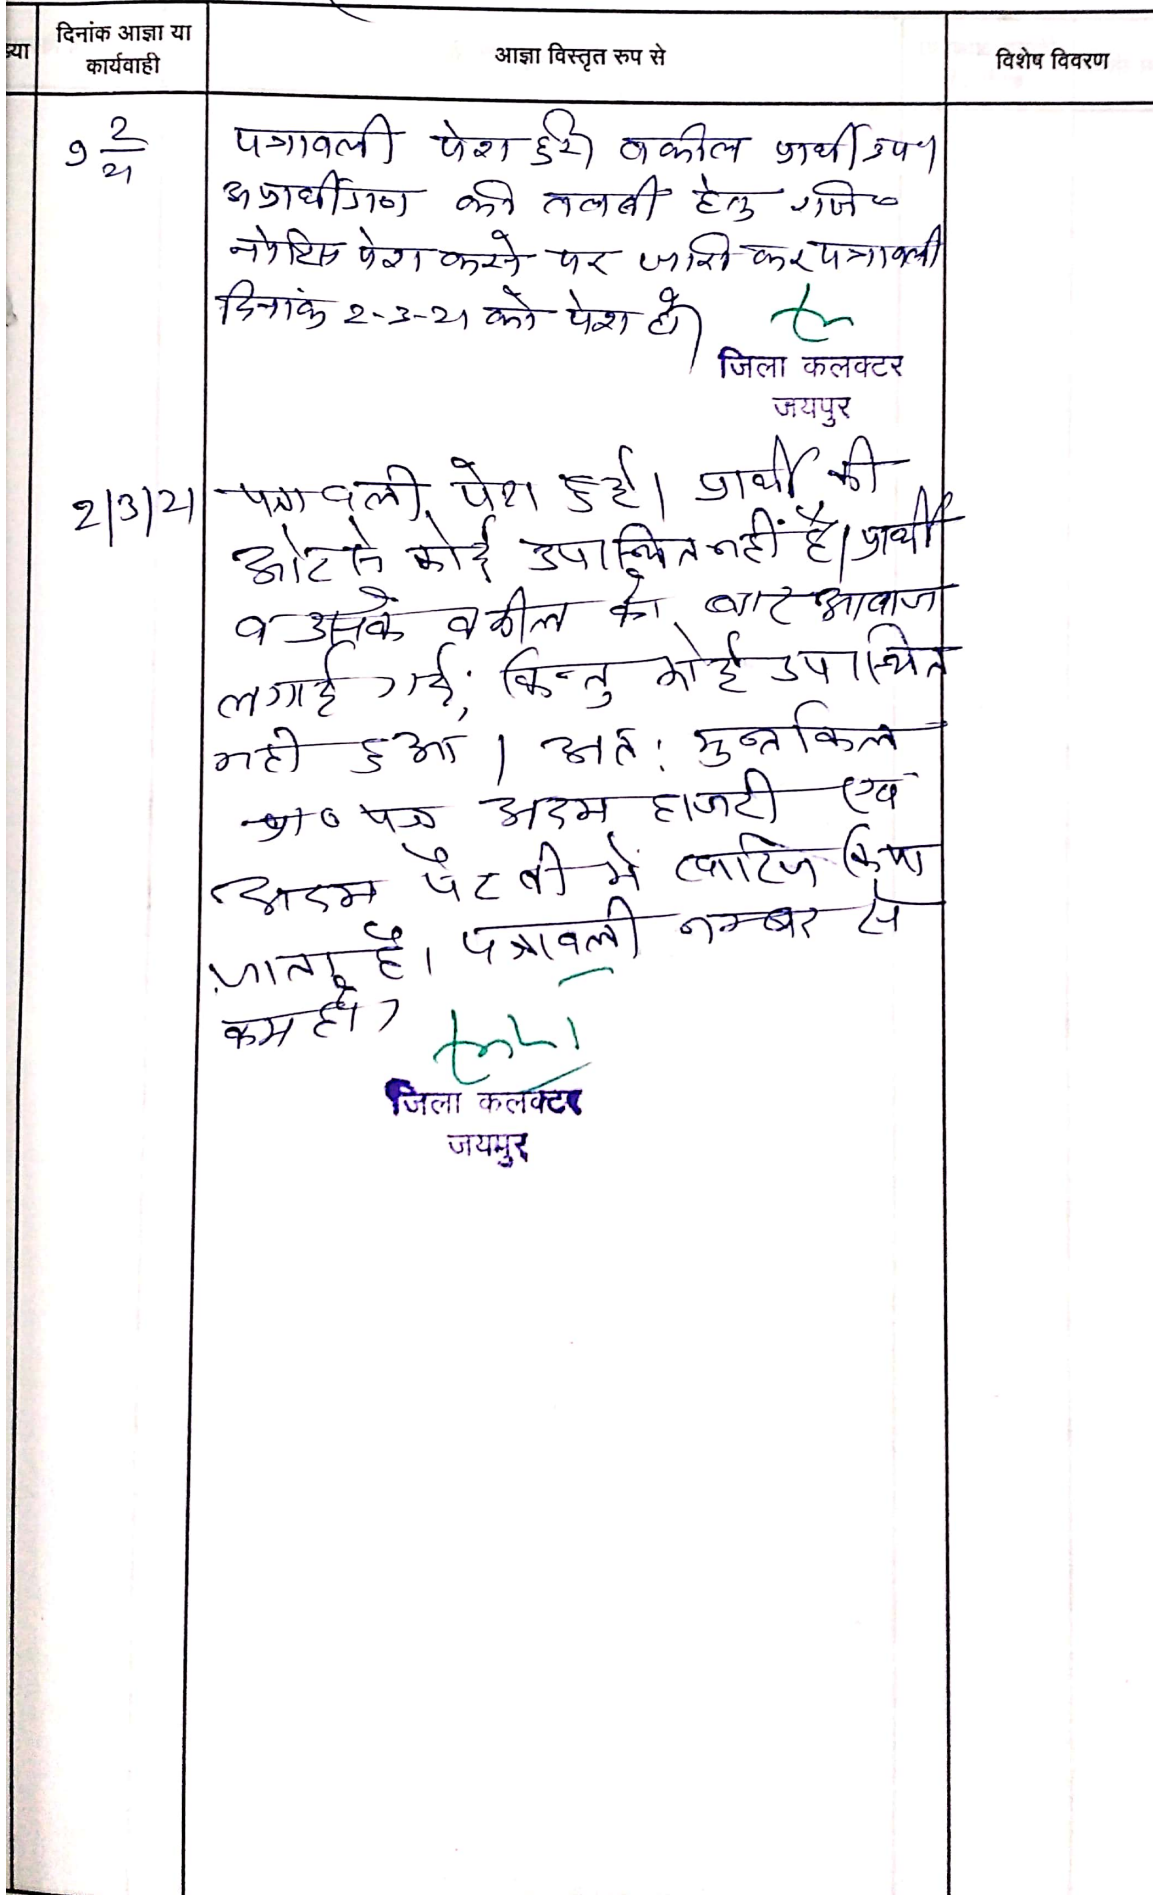 ख्या
दिनांक आज्ञा या
कार्यवाही
आज्ञा विस्तृत रुप से
विशेष विवरण
9 2/21
पत्रावली पेश हुई। वकील प्रार्थी उप।
अप्रार्थीगण की तलबी हेतु रजि०
नोटिस पेश करने पर जारी कर पत्रावली
दिनांक 2-3-21 को पेश हो।
जिला कलक्टर
जयपुर
2/3/21
पत्रावली पेश हुई। प्रार्थी की
ओर से कोई उपस्थित नहीं है। प्रार्थी
व उसके वकील को बार आवाज
लगाई गई, किन्तु कोई उपस्थित
नहीं हुआ। अतः मुन्तकिल
प्रा० पत्र अदम हाजरी एवं
अदम पैरवी में खारिज किया
जाता है। पत्रावली नम्बर से
कम हो।
जिला कलक्टर
जयपुर